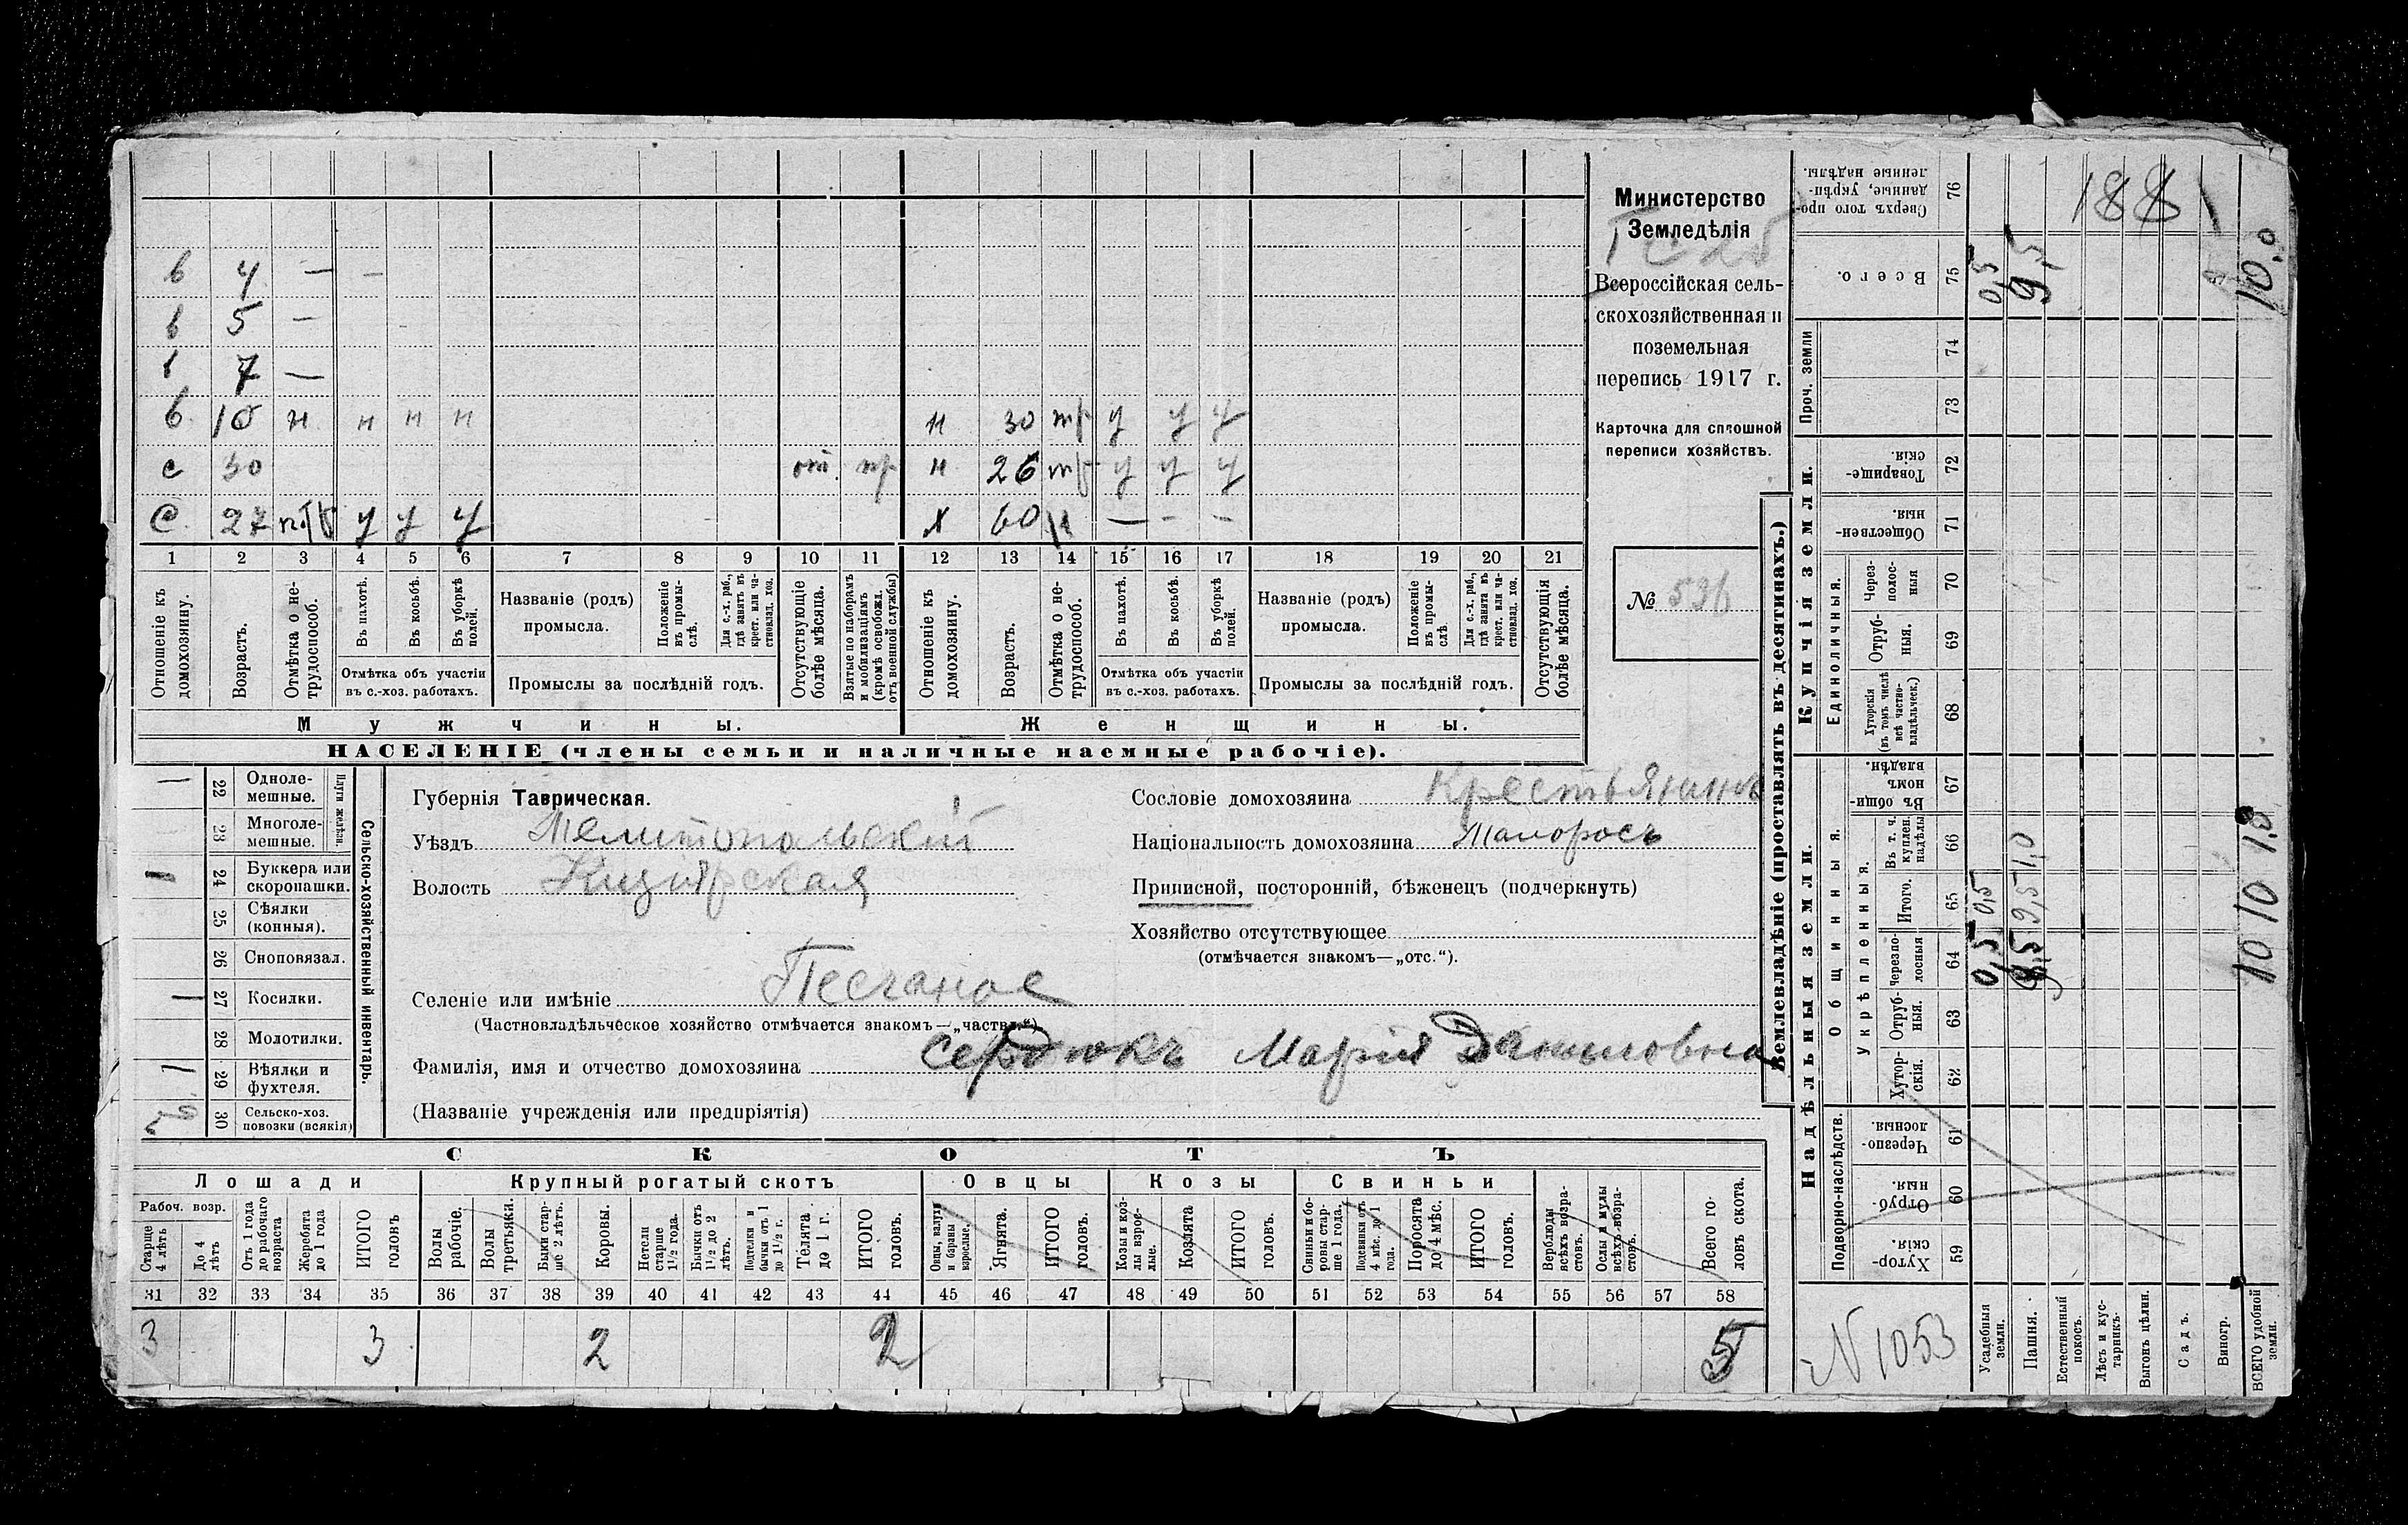 в 4 — —
в 5 —
в 7 —
в 10 н н н н н 30 тр у у у
с 30 от. н 26 тр у у у
с 27 у у у х 60 н — - -
1 2 3 4 5 6 7 8 9 10 11 12 13 14 15 16 17 18 19 20 21
Отношеніе къ домохозяину.
Возрастъ.
Отмѣтка о не-трудоспособ.
Въ пахотѣ.
Въ косьбѣ.
Въ уборкѣ полей.
Отмѣтка объ участіи
въ с.-хоз. работахъ.
Названіе (родъ)
промысла.
Положеніе въ промы-слѣ.
Для с.-х. раб., гдѣ занятъ въ крест. или ча-стновлад. хоз.
Промыслы за послѣдній годъ.
Отсутствующіе болѣе мѣсяца.
Взятые по наборамъ и мобилизаціямъ (кромѣ освобожд. отъ военной службы)
Отношеніе къ домохозяину.
Возрастъ.
Отмѣтка о не-трудоспособ.
Въ пахотѣ.
Въ косьбѣ.
Въ уборкѣ полей.
Отмѣтка объ участіи
въ с.-хоз. работахъ.
Названіе (родъ)
промысла.
Положеніе въ промы-слѣ.
Для с.-х. раб., гдѣ занята въ крест. или ча-стновлад. хоз.
Промыслы за послѣдній годъ.
Отсутствующія болѣе мѣсяца.
Мужчины. Женщины.
НАСЕЛЕНІЕ (члены семьи и наличные наемные рабочіе).
Министерство
Земледѣлія
Всероссійская сель-
скохозяйственная и
поземельная
перепись 1917 г.
Карточка для сплошной
переписи хозяйствъ.
№ 536
Сельско-хозяйственный инвентарь.
Плуги желѣзн.
— 22 Одноле-
мешные.
23 Многоле-
мешные.
1 24 Буккера или
скоропашки.
25 Сѣялки
(конныя).
26 Сноповязал.
1 27 Косилки.
28 Молотилки.
1 29 Вѣялки и
фухтеля.
30 Сельско-хоз.
повозки (всякія)
Губернія Таврическая.
Уѣздъ Мелитопольскій
Волость Кизіярская
Селеніе или имѣніе Песчаное
(Частновладѣльческое хозяйство отмѣчается знакомъ—„частвл.“)
Фамилія, имя и отчество домохозяина Сердюкъ Марія Даниловна
(Названіе учрежденія или предпріятія)
Сословіе домохозяина Крестьянинъ
Національность домохозяина Малоросъ
Приписной, посторонній, бѣженецъ (подчеркнуть)
Хозяйство отсутствующее
(отмѣчается знакомъ—„отс.“).
СКОТЪ
Лошади Крупный рогатый скотъ Овцы Козы Свиньи
Рабоч. возр.
Старше 4 лѣтъ
До 4 лѣтъ
Отъ 1 года до рабочаго возраста
Жеребята до 1 года
ИТОГО головъ
Волы рабочіе.
Волы третьяки.
Быки стар-ше 2 лѣтъ.
Коровы.
Нетели старше 1½ года.
Бычки отъ 1½ до 2 лѣтъ.
Подтелки и бычки отъ 1 до 1½ г.
Телята до 1 г.
ИТОГО головъ.
Овцы, валухи и бараны взрослые.
Ягнята.
ИТОГО головъ.
Козы и коз-лы взрос-лые.
Козлята
ИТОГО головъ.
Свиньи и бо-ровы стар-ше 1 года.
Подсвинки отъ 4 мѣс. до 1 года.
Поросята до 4 мѣс.
ИТОГО головъ.
Верблюды всѣхъ возра-стовъ.
Ослы и мулы всѣхъ возра-стовъ.
Всего го-ловъ скота.
31 32 33 34 35 36 37 38 39 40 41 42 43 44 45 46 47 48 49 50 51 52 53 54 55 56 57 58
3 3 2 2 5
Землевладѣніе (проставлять въ десятинахъ.)
Надѣльныя земли. Купчія земли.
Проч. земли
Подворно-наслѣдств.
Общинныя.
Укрѣпленныя.
Единоличныя.
Хутор-скія. 59
Отруб-ныя. 60
Черезпо-лосныя. 61
Хутор-скія. 62
Отруб-ныя. 63
Черезпо-лосныя 64
Итого. 65
Въ т. ч. куплен. надѣлы 66
Въ общин-номъ владѣн. 67
Хуторскія (въ томъ числѣ всѣ частно-владѣльческ.) 68
Отруб-ныя. 69
Через-полос-ныя 70
Обществен-ныя. 71
Товарище-скія. 72
73
74
Всего. 75
Сверхъ того про-данные, укрѣп-ленные надѣлы. 76
N 1053
Усадебныя земли. 0,5 0,5 0,5
Пашня. 9,5 9,5 1,0 9,5
Естественный покосъ.
Лѣсъ и кус-тарникъ.
Выгонъ цѣлин.
Садъ.
Виногр.
ВСЕГО удобной земли. 10 10 10,0
188